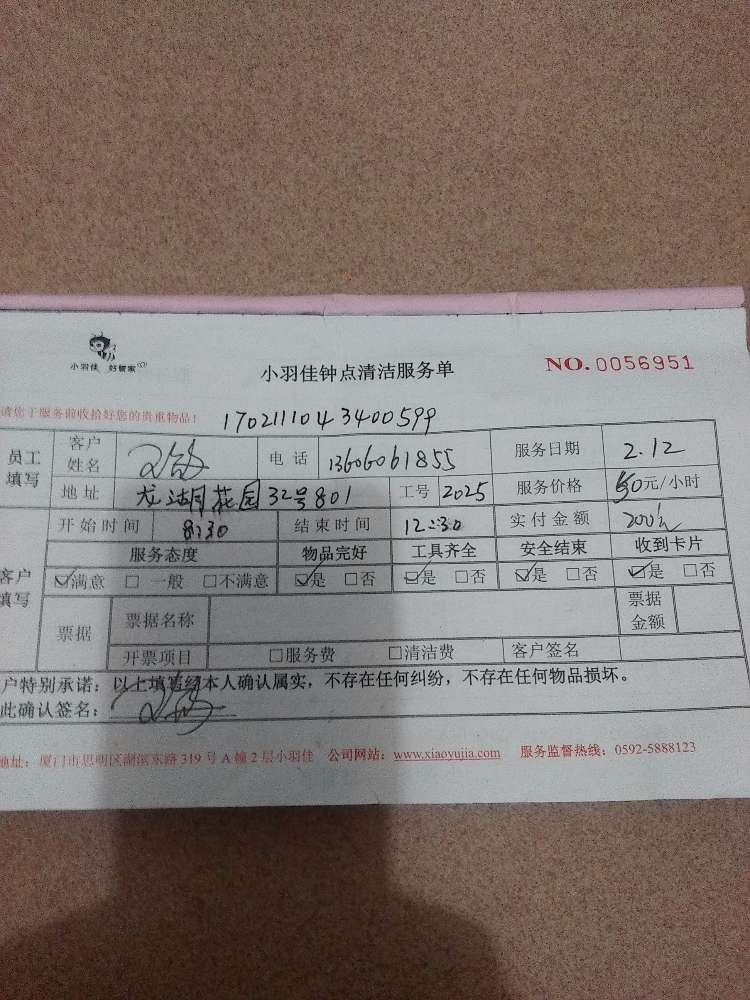 小羽佳 好管家
小羽佳钟点清洁服务单
NO. 0056951
请您于服务前收拾好您的贵重物品！
1702111043400599
员工填写 客户姓名 电话 13606061855 服务日期 2.12
地址 龙湖月花园32号801 工号 2025 服务价格 50元/小时
开始时间 8:30 结束时间 12:30 实付金额 200元
客户填写 服务态度 物品完好 工具齐全 安全结束 收到卡片
☑满意 □一般 □不满意 ☑是 □否 ☑是 □否 ☑是 □否 ☑是 □否
票据 票据名称 票据金额
开票项目 □服务费 □清洁费 客户签名
户特别承诺：以上填写经本人确认属实，不存在任何纠纷，不存在任何物品损坏。
此确认签名：
地址：厦门市思明区湖滨东路319号A幢2层小羽佳 公司网站：www.xiaoyujia.com 服务监督热线：0592-5888123